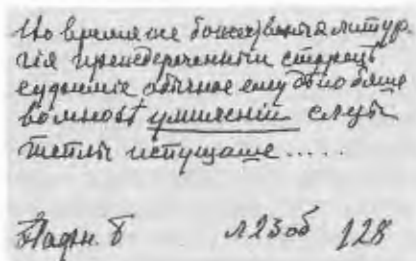 Во время же божественныя литур
гия преизреченный старець
обычное ему
во мнозѣ умиленiи слезы
теплы испущаше.....
Пафн. Б л 23 об 128